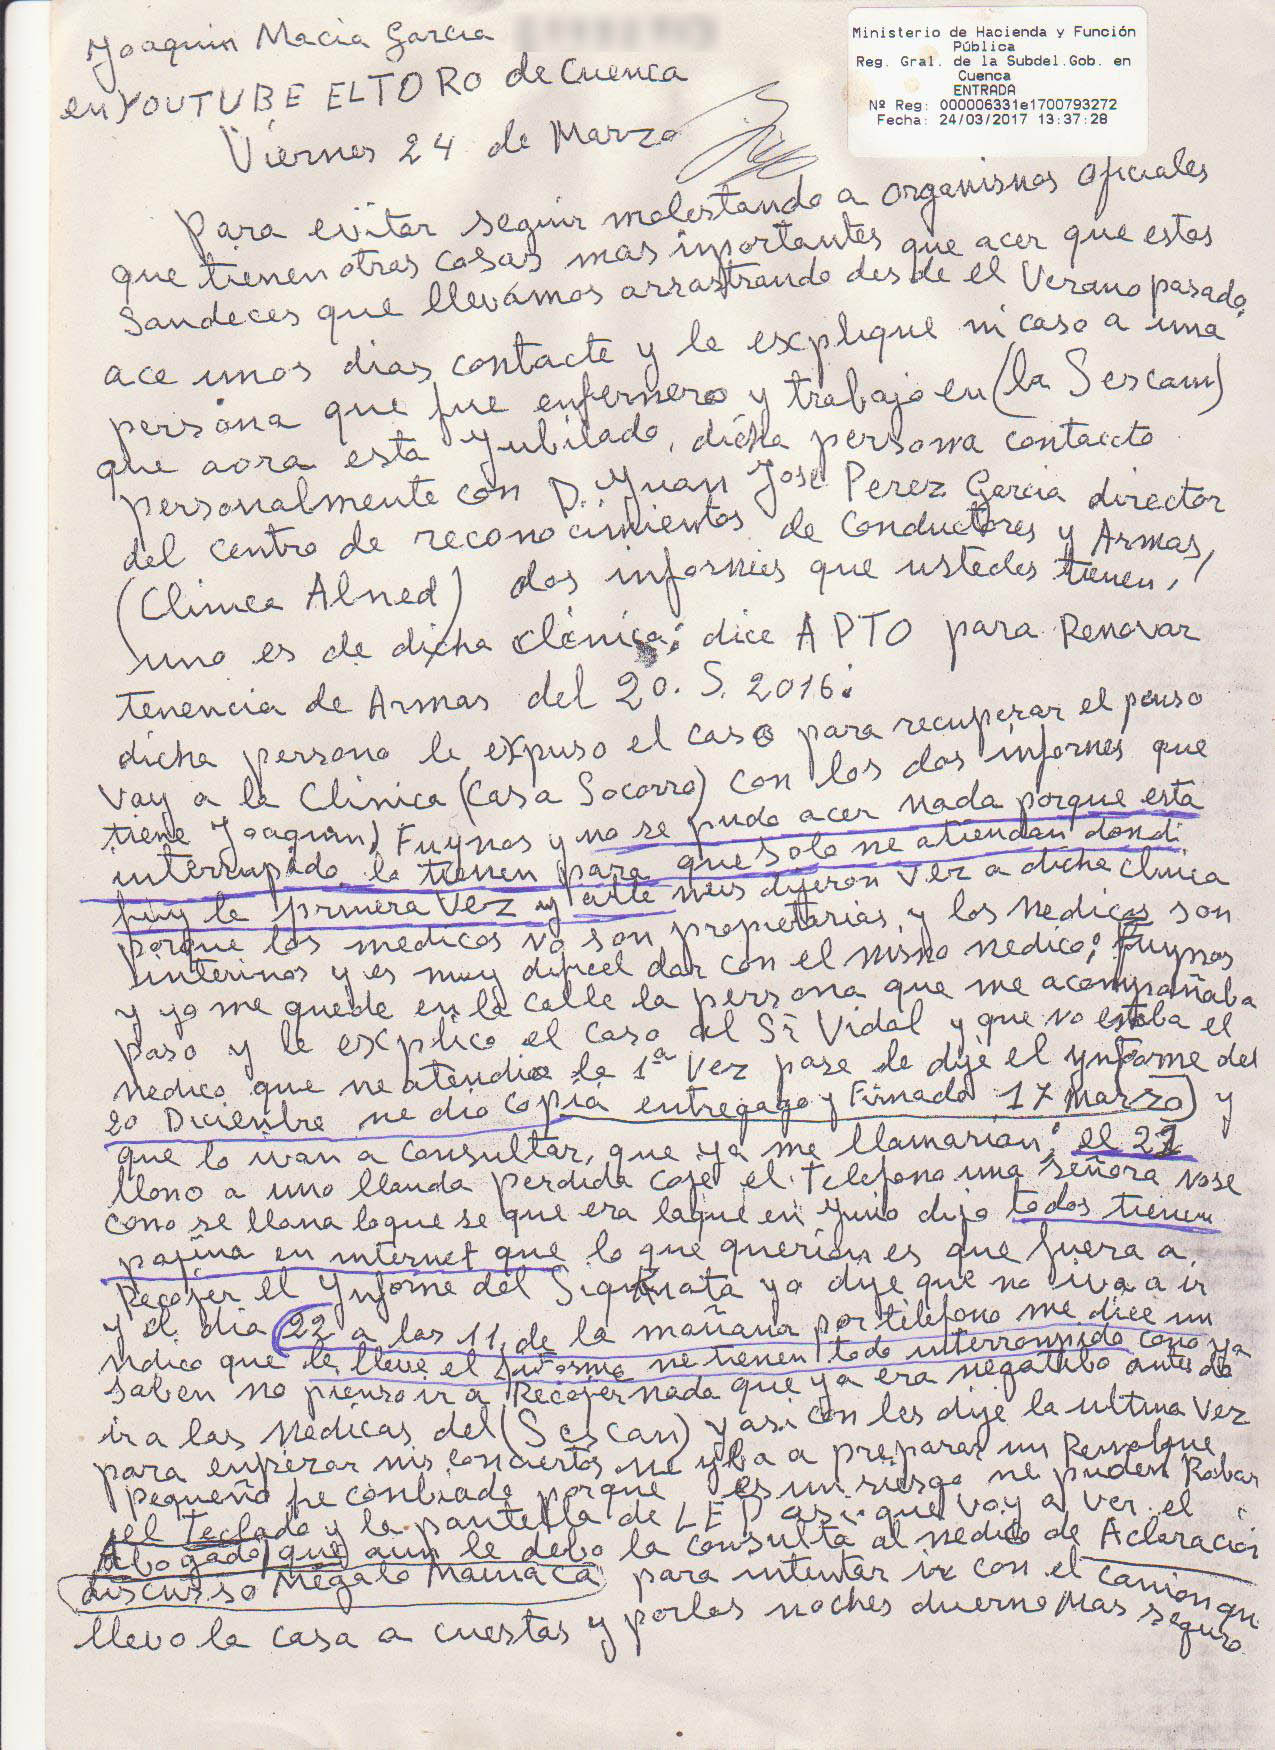 Joaquin Macia Garcia
en YOUTUBE EL TORO de Cuenca
Viernes 24 de Marzo
Ministerio de Hacienda y Función
Pública
Reg. Gral. de la Subdel.Gob. en
Cuenca
ENTRADA
Nº Reg: 000006331e1700793272
Fecha: 24/03/2017 13:37:28
Para evitar seguir molestando a organismos oficiales
que tienen otras cosas mas inportantes que acer que estas
Sandeces que llevamos arrastrando desde el Verano pasado,
ace unos dias contacte y le explique mi caso a una
persona que fue enfermero y trabajo en (la Sescam)
que aora esta Jubilado, dicha persona contacto
personalmente con D. Juan Jose Perez Garcia director
del centro de reconocimientos de Conductores y Armas,
(Clinica Alned) dos informes que ustedes tienen,
uno es de dicha clinica; dice APTO para Renovar
tenencia de Armas del 20. S. 2016.
dicha persona le expuso el caso para recuperar el permiso
Voy a la Clinica (Casa Socorro) con los dos informes que
tiene Joaquin) Fuymos y no se pudo acer nada porque esta
interrupido lo tienen para que solo ne atiendan dond
fuy la primera Vez y alle neis dijeron Vez a dicha clinica
porque los medicos no son propietarias y los Nedicos son
interinos y es muy dificel dar con el nismo nedico; Fuymos
y yo me quede en la calle la persona que me acompañaba
paso y le explico el caso al Sr Vidal y que no estaba el
Nedico que ne atendio la 1ª Vez pase le dije el ynforme del
20 Diciembre ne dio copia entregago y Firmado 17 Marzo) y
que lo ivan a Consultar, que ya me llamarian; el 21
llono a uno llanda perdida coje el Telefono una señora nose
cono se llana loque se que era laque en Junio dijo todos tienen
pajina en internet que lo que querian es que fuera a
Recojer el Ynforme del Siquiata yo dije que no iva a ir
y el dia 22 a las 11 de la mañana por telefono me dice un
ndico que le lleve el informe ne tienen todo interronpido cono ya
saben no pienso ir a Recojer nada que ya era negatibo antes de
ir a las Nedicas del (Sescan) y asi con les dije la ultima Vez
para enperar mis conciertos ne yba a preparar un Remolque
pequeño pe conbiade porque es un riesgo ne pueden Robar
el Teclado y la pantella de LED asi que voy a ver el
Abogado) que aun le debo la consulta al nedico de Aclaracion
discurso Megalo Maniaca para intentar ir con el camion que
llevo la casa a cuestas y por las noches duermo Mas seguro